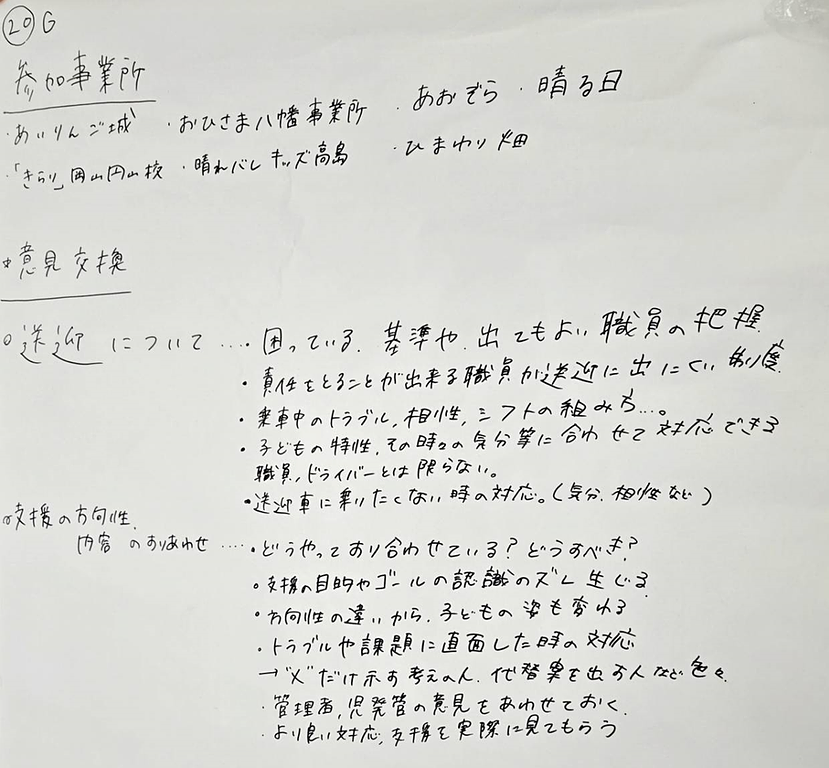 ⑳G
参加事業所
・あいりんご城 ・おひさま八幡事業所 ・あおぞら ・晴る日
・「きらり」岡山円山校 ・晴れバレキッズ高島 ・ひまわり畑
*意見交換
○送迎について…・困っている。基準や、出てもよい職員の把握
・責任をとることが出来る職員が送迎に出にくい制度
・乗車中のトラブル,相性,シフトの組み方…。
・子どもの特性,その時々の気分等に合わせて対応できる
職員,ドライバーとは限らない。
・送迎車に乗りたくない時の対応。(気分.相性など)
○支援の方向性,
内容のすりあわせ‥‥・どうやってすり合わせている?どうすべき?
・支援の目的やゴールの認識のズレ生じる
・方向性の違いから、子どもの姿も変わる
・トラブルや課題に直面した時の対応
→"×"だけ示す考えの人、代替案を出す人など色々
・管理者,児発管の意見をあわせておく、
・より良い対応,支援を実際に見てもらう